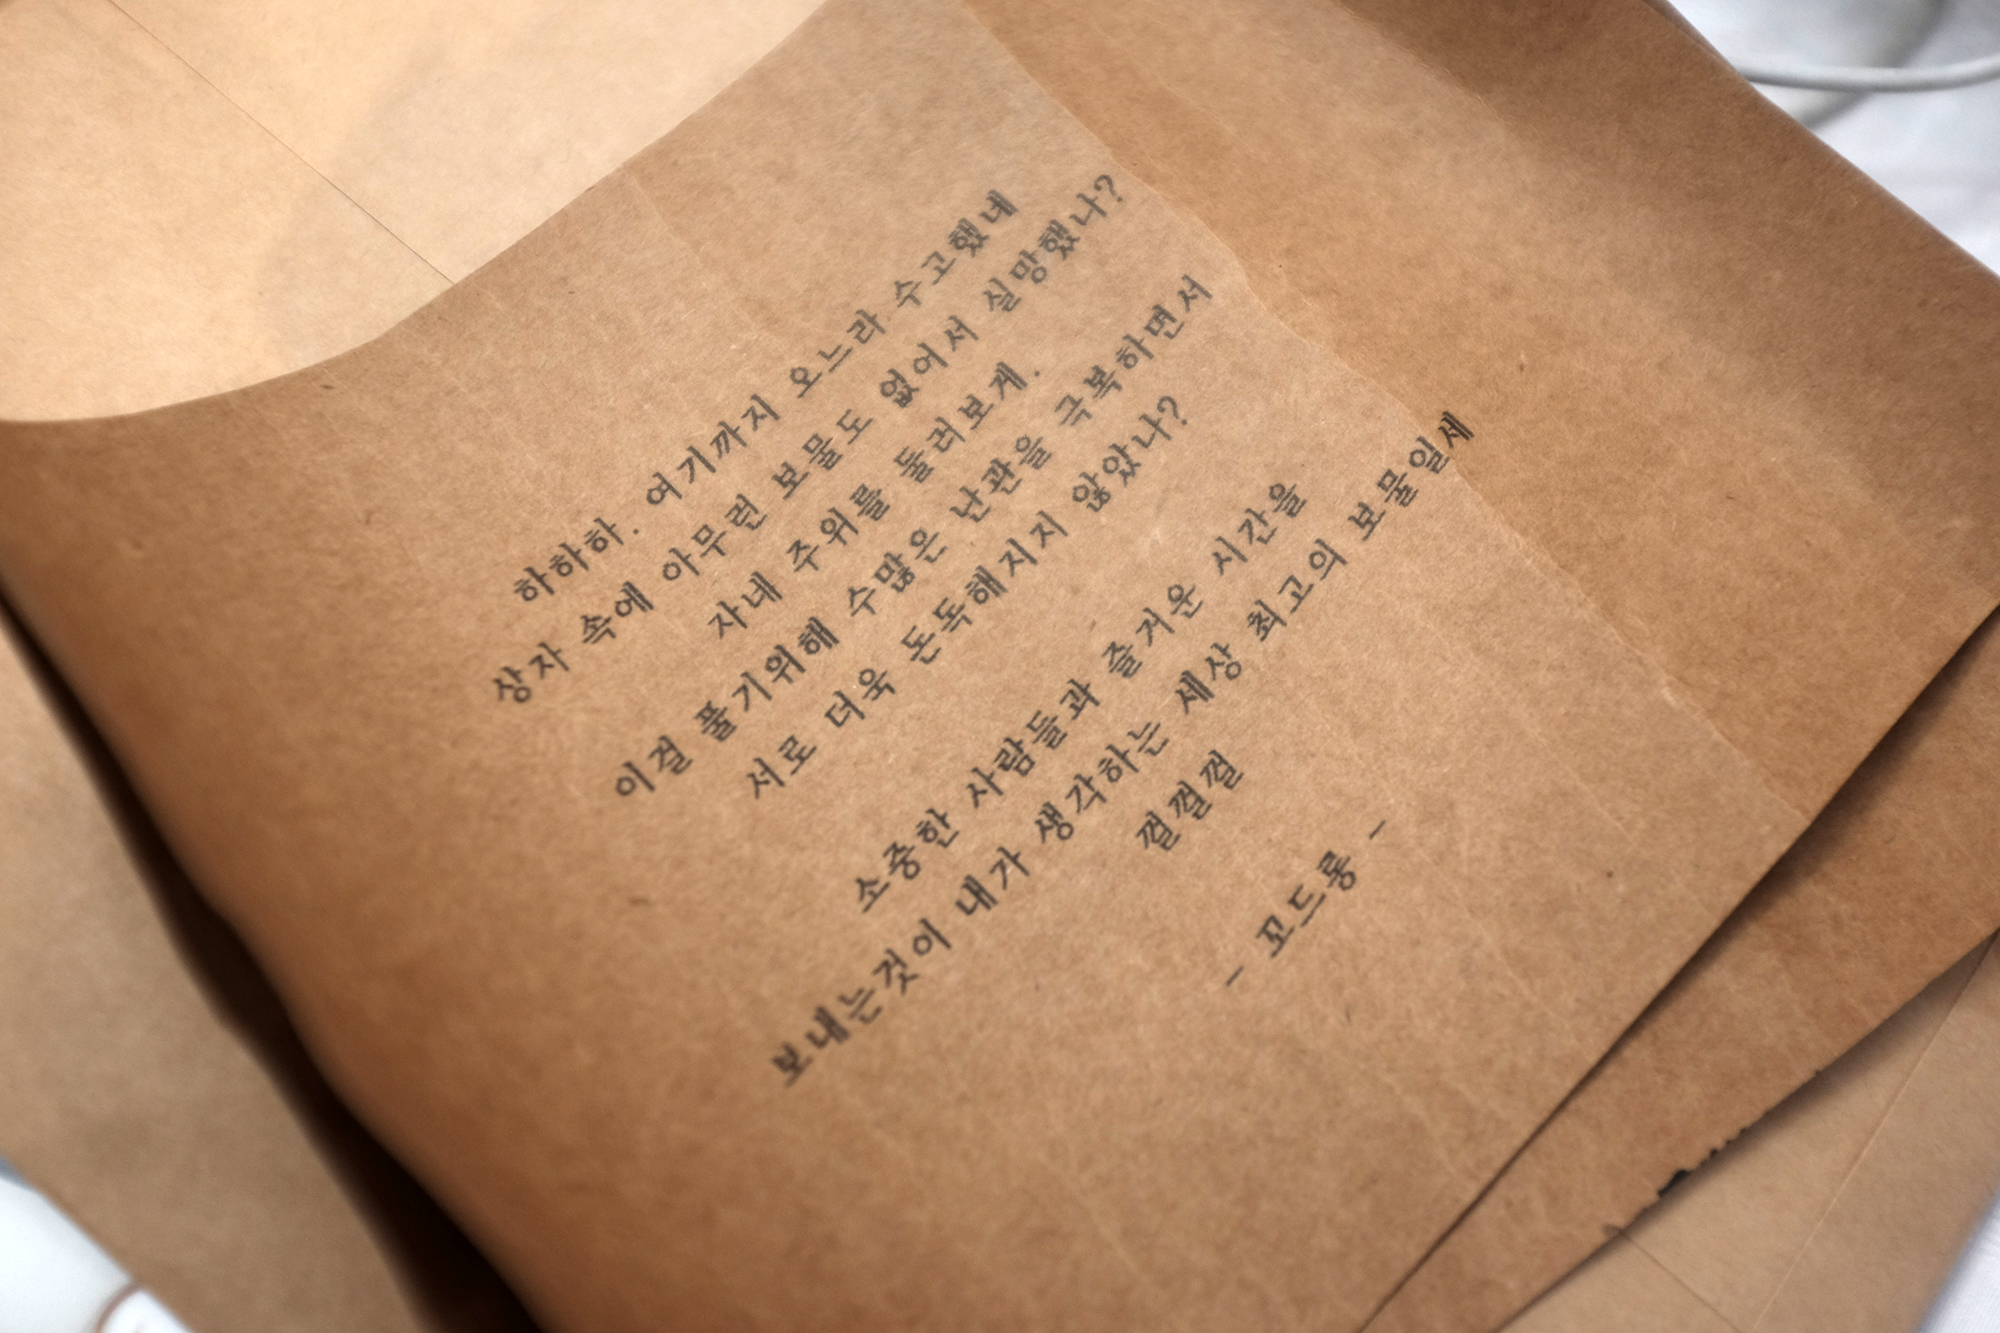 하하하. 여기까지 오느라 수고했네
상자 속에 아무런 보물도 없어서 실망했나?
자네 주위를 둘러보게.
이걸 풀기위해 수많은 난관을 극복하면서
서로 더욱 돈독해지지 않았나?
소중한 사람들과 즐거운 시간을
보내는것이 내가 생각하는 세상 최고의 보물일세
껄껄껄
- 꼬드롱 -